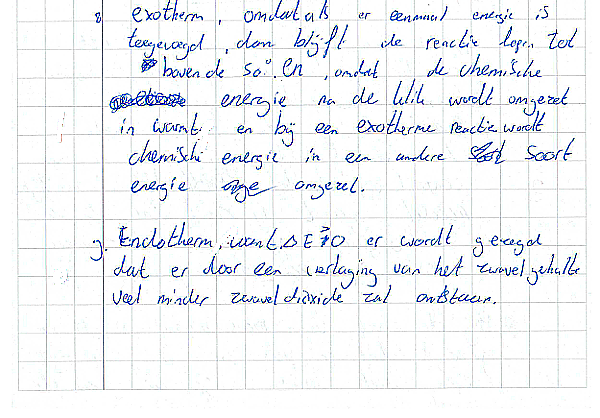 8 exotherm, omdat als er eenmaal energie is
toegevoegd, dan blijft de reactie lopen tot
boven de 50°. En, omdat de chemische
energie na de klik wordt omgezet
in warmte en bij een exotherme reactie wordt
chemische energie in een andere soort
energie omgezet.
9. Endotherm, want ΔE > 0 er wordt gezegd
dat er door een verlaging van het zwavelgehalte
veel minder zwaveldioxide zal ontstaan.